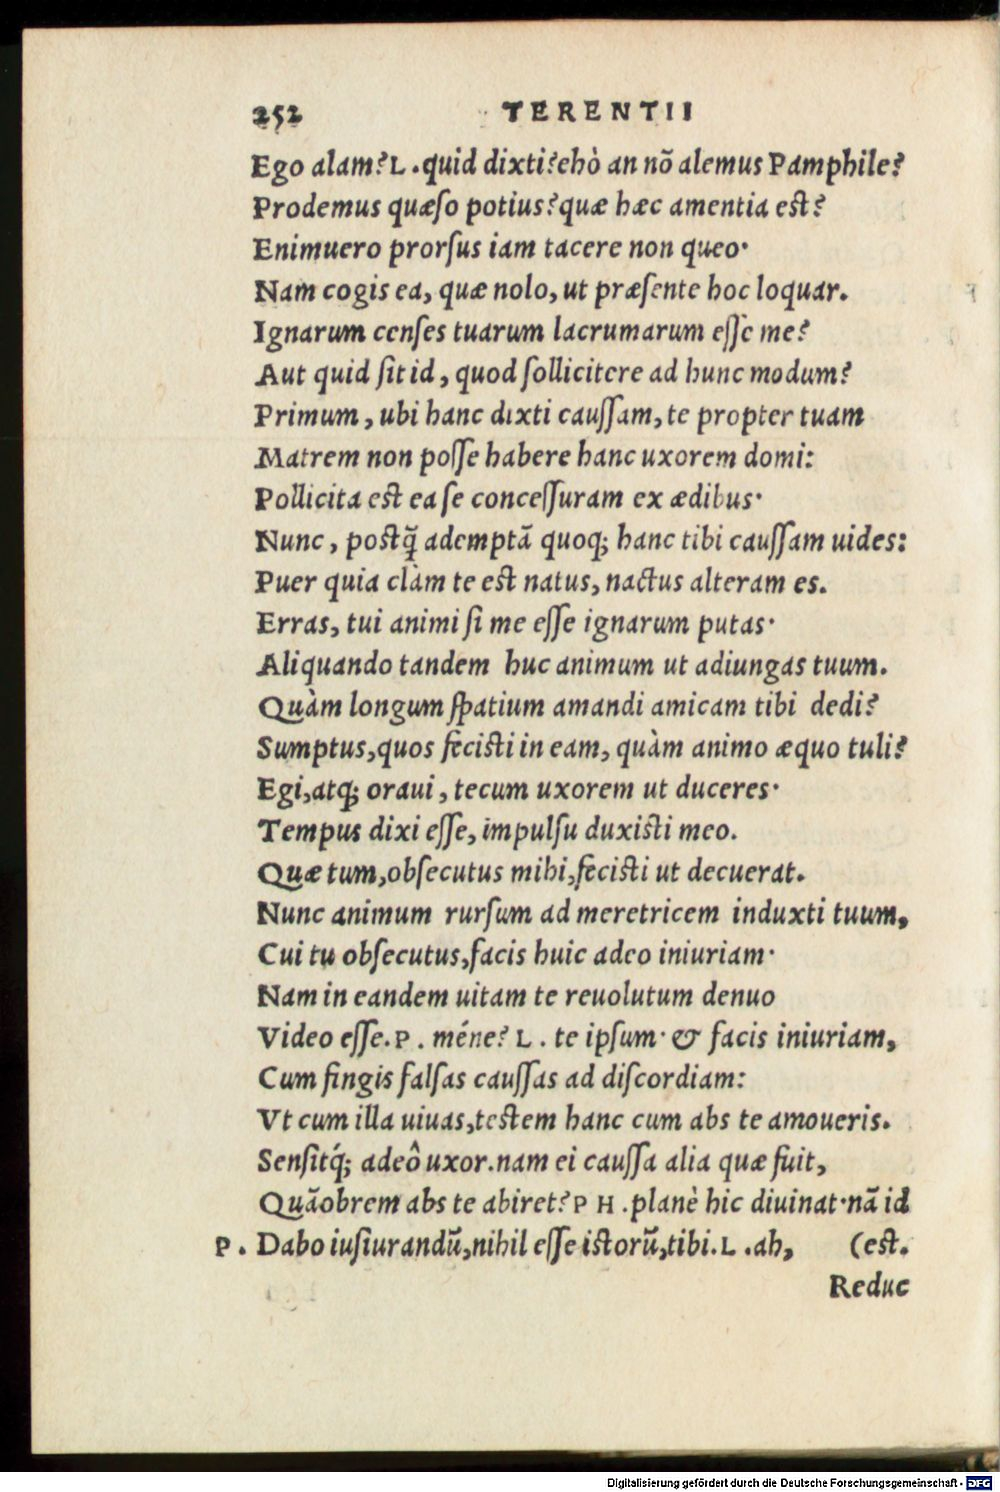 252 TERENTII
Ego alam? L. quid dixti? ehò an nõ alemus Pamphile?
Prodemus quæso potius? quæ hæc amentia est?
Enimuero prorsus iam tacere non queo·
Nam cogis ea, quæ nolo, ut præsente hoc loquar.
Ignarum censes tuarum lacrumarum esse me?
Aut quid sit id, quod sollicitere ad hunc modum?
Primum, ubi hanc dixti caussam, te propter tuam
Matrem non posse habere hanc uxorem domi:
Pollicita est ea se concessuram ex ædibus·
Nunc, postq̃ ademptã quoq; hanc tibi caussam uides:
Puer quia clàm te est natus, nactus alteram es.
Erras, tui animi si me esse ignarum putas·
Aliquando tandem huc animum ut adiungas tuum.
Quàm longum spatium amandi amicam tibi dedi?
Sumptus, quos fecisti in eam, quàm animo æquo tuli?
Egi, atq; oraui, tecum uxorem ut duceres·
Tempus dixi esse, impulsu duxisti meo.
Quæ tum, obsecutus mihi, fecisti ut decuerat.
Nunc animum rursum ad meretricem induxti tuum,
Cui tu obsecutus, facis huic adeo iniuriam·
Nam in eandem uitam te reuolutum denuo
Video esse. P. méne? L. te ipsum· & facis iniuriam,
Cum fingis falsas caussas ad discordiam:
Vt cum illa uiuas, testem hanc cum abs te amoueris.
Sensitq́; adeô uxor. nam ei caussa alia quæ fuit,
Quãobrem abs te abiret? PH. planè hic diuinat· nã id
P. Dabo iusiurandũ, nihil esse istorũ, tibi. L. ah, (est.
Reduc
Digitalisierung gefördert durch die Deutsche Forschungsgemeinschaft - DFG